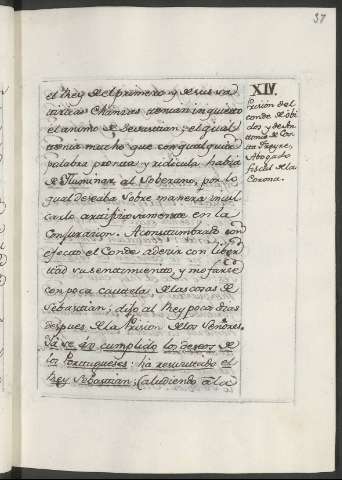 37
el Rey del primero y de sus va
rias Chanzas tenian inquieto
el animo de Sevastian; el qual
temia mucho que con qualquier
palabra pronta y ridicula habia
de Iluminar al Soberano, por lo
qual deseaba sobre manera incul
carlo artificiosamente en la
Conjuracion. Acostumbrado con
efecto el Conde a decir con liber
tad su sentimiento, y mofarse
con poca cautela de las cosas de
Sebastian; dijo al Rey pocos dias
despues de la Prision de los Señores.
Ya se an cumplido los deseos de
los Portugueses: ha resuscitado el
Rey Sebastian; (aludiendo a la
XIV.
Prision del
conde de Obi
dos y de An
tonio de Cos
ta Freyre,
Abogado
fiscal de la
Corona.